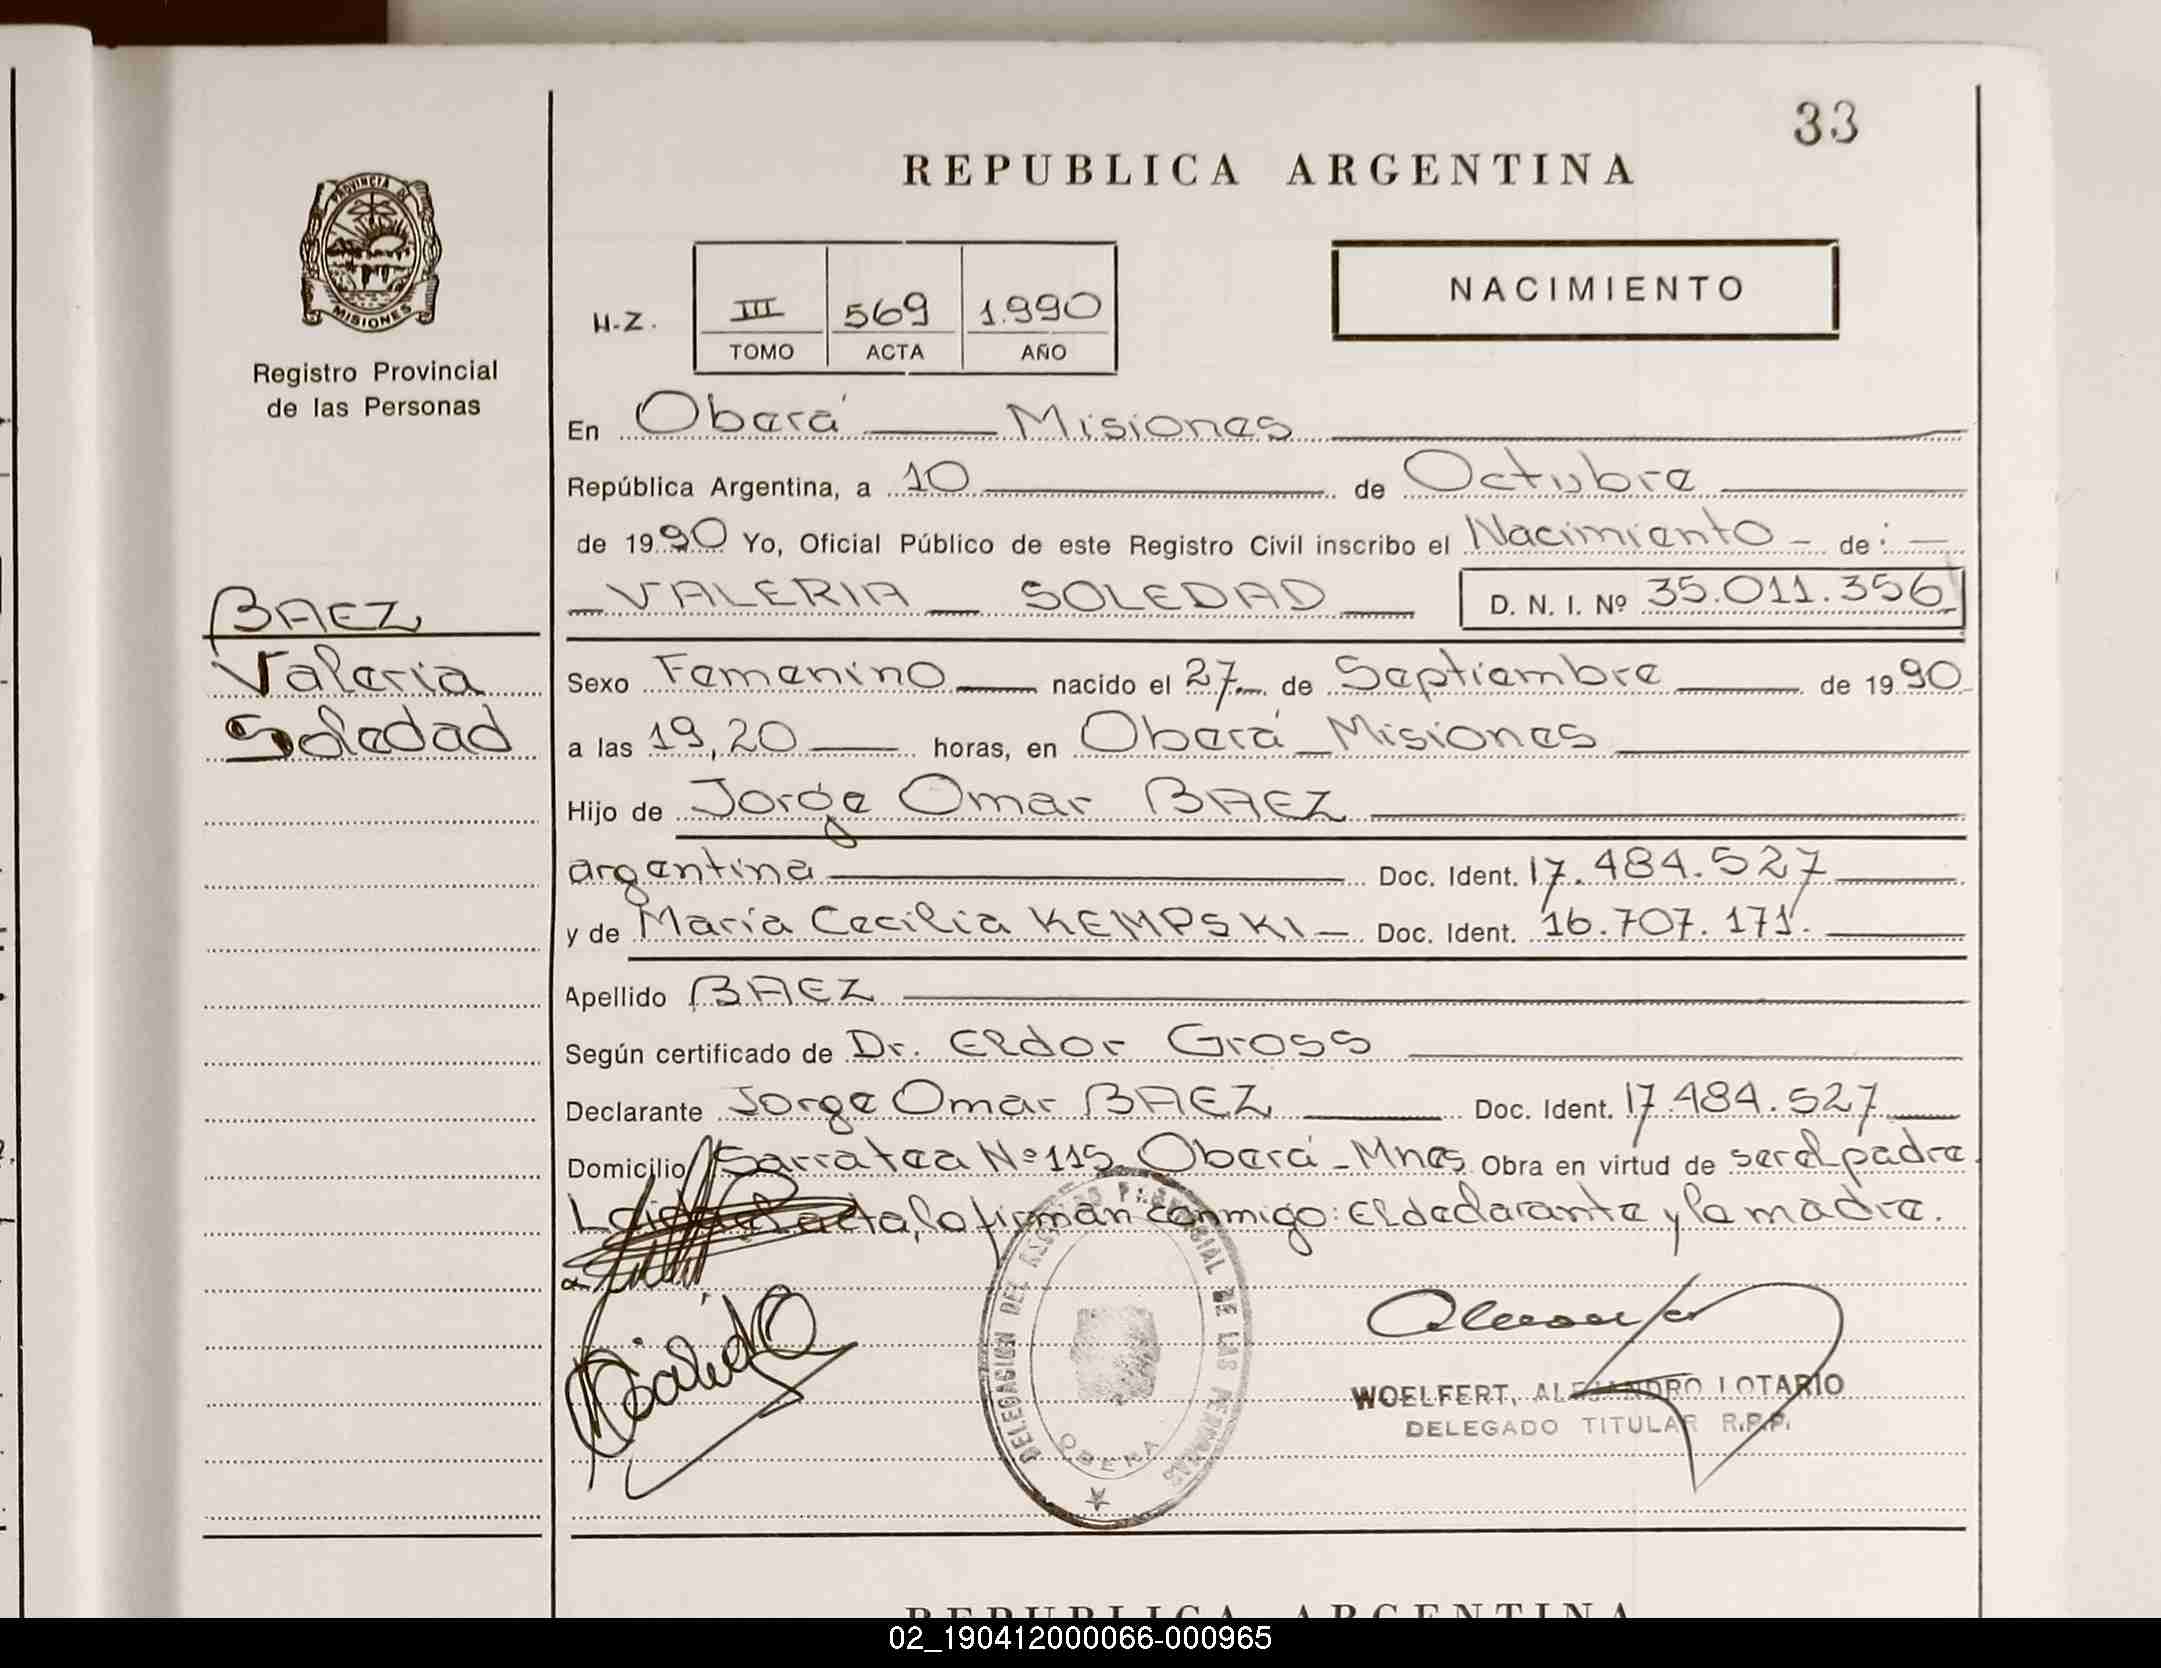 33
REPUBLICA ARGENTINA
PROVINCIA DE
MISIONES
Registro Provincial
de las Personas
H.Z.
III 569 1.990
TOMO ACTA AÑO
NACIMIENTO
En Oberá — Misiones
República Argentina, a 10 de Octubre
de 1990 Yo, Oficial Público de este Registro Civil inscribo el Nacimiento - de: —
VALERIA — SOLEDAD — D. N. I. Nº 35.011.356
BAEZ
Valeria
Soledad
Sexo Femenino nacido el 27 de Septiembre de 1990
a las 19,20 horas, en Oberá _ Misiones
Hijo de Jorge Omar BAEZ
argentina Doc. Ident. 17.484.527
y de María Cecilia KEMPSKI — Doc. Ident. 16.707.171.
Apellido BAEZ
Según certificado de Dr. Eldor Gross
Declarante Jorge Omar BAEZ Doc. Ident. 17.484.527
Domicilio Sarratea Nº 115 Oberá - Mnes. Obra en virtud de ser el padre.
Leida el acta, la firman conmigo: El declarante y la madre.
DELEGACION DEL REGISTRO PROVINCIAL DE LAS PERSONAS
OBERA
WOELFERT, ALEJANDRO LOTARIO
DELEGADO TITULAR R.P.P.
REPUBLICA ARGENTINA
02_190412000066-000965